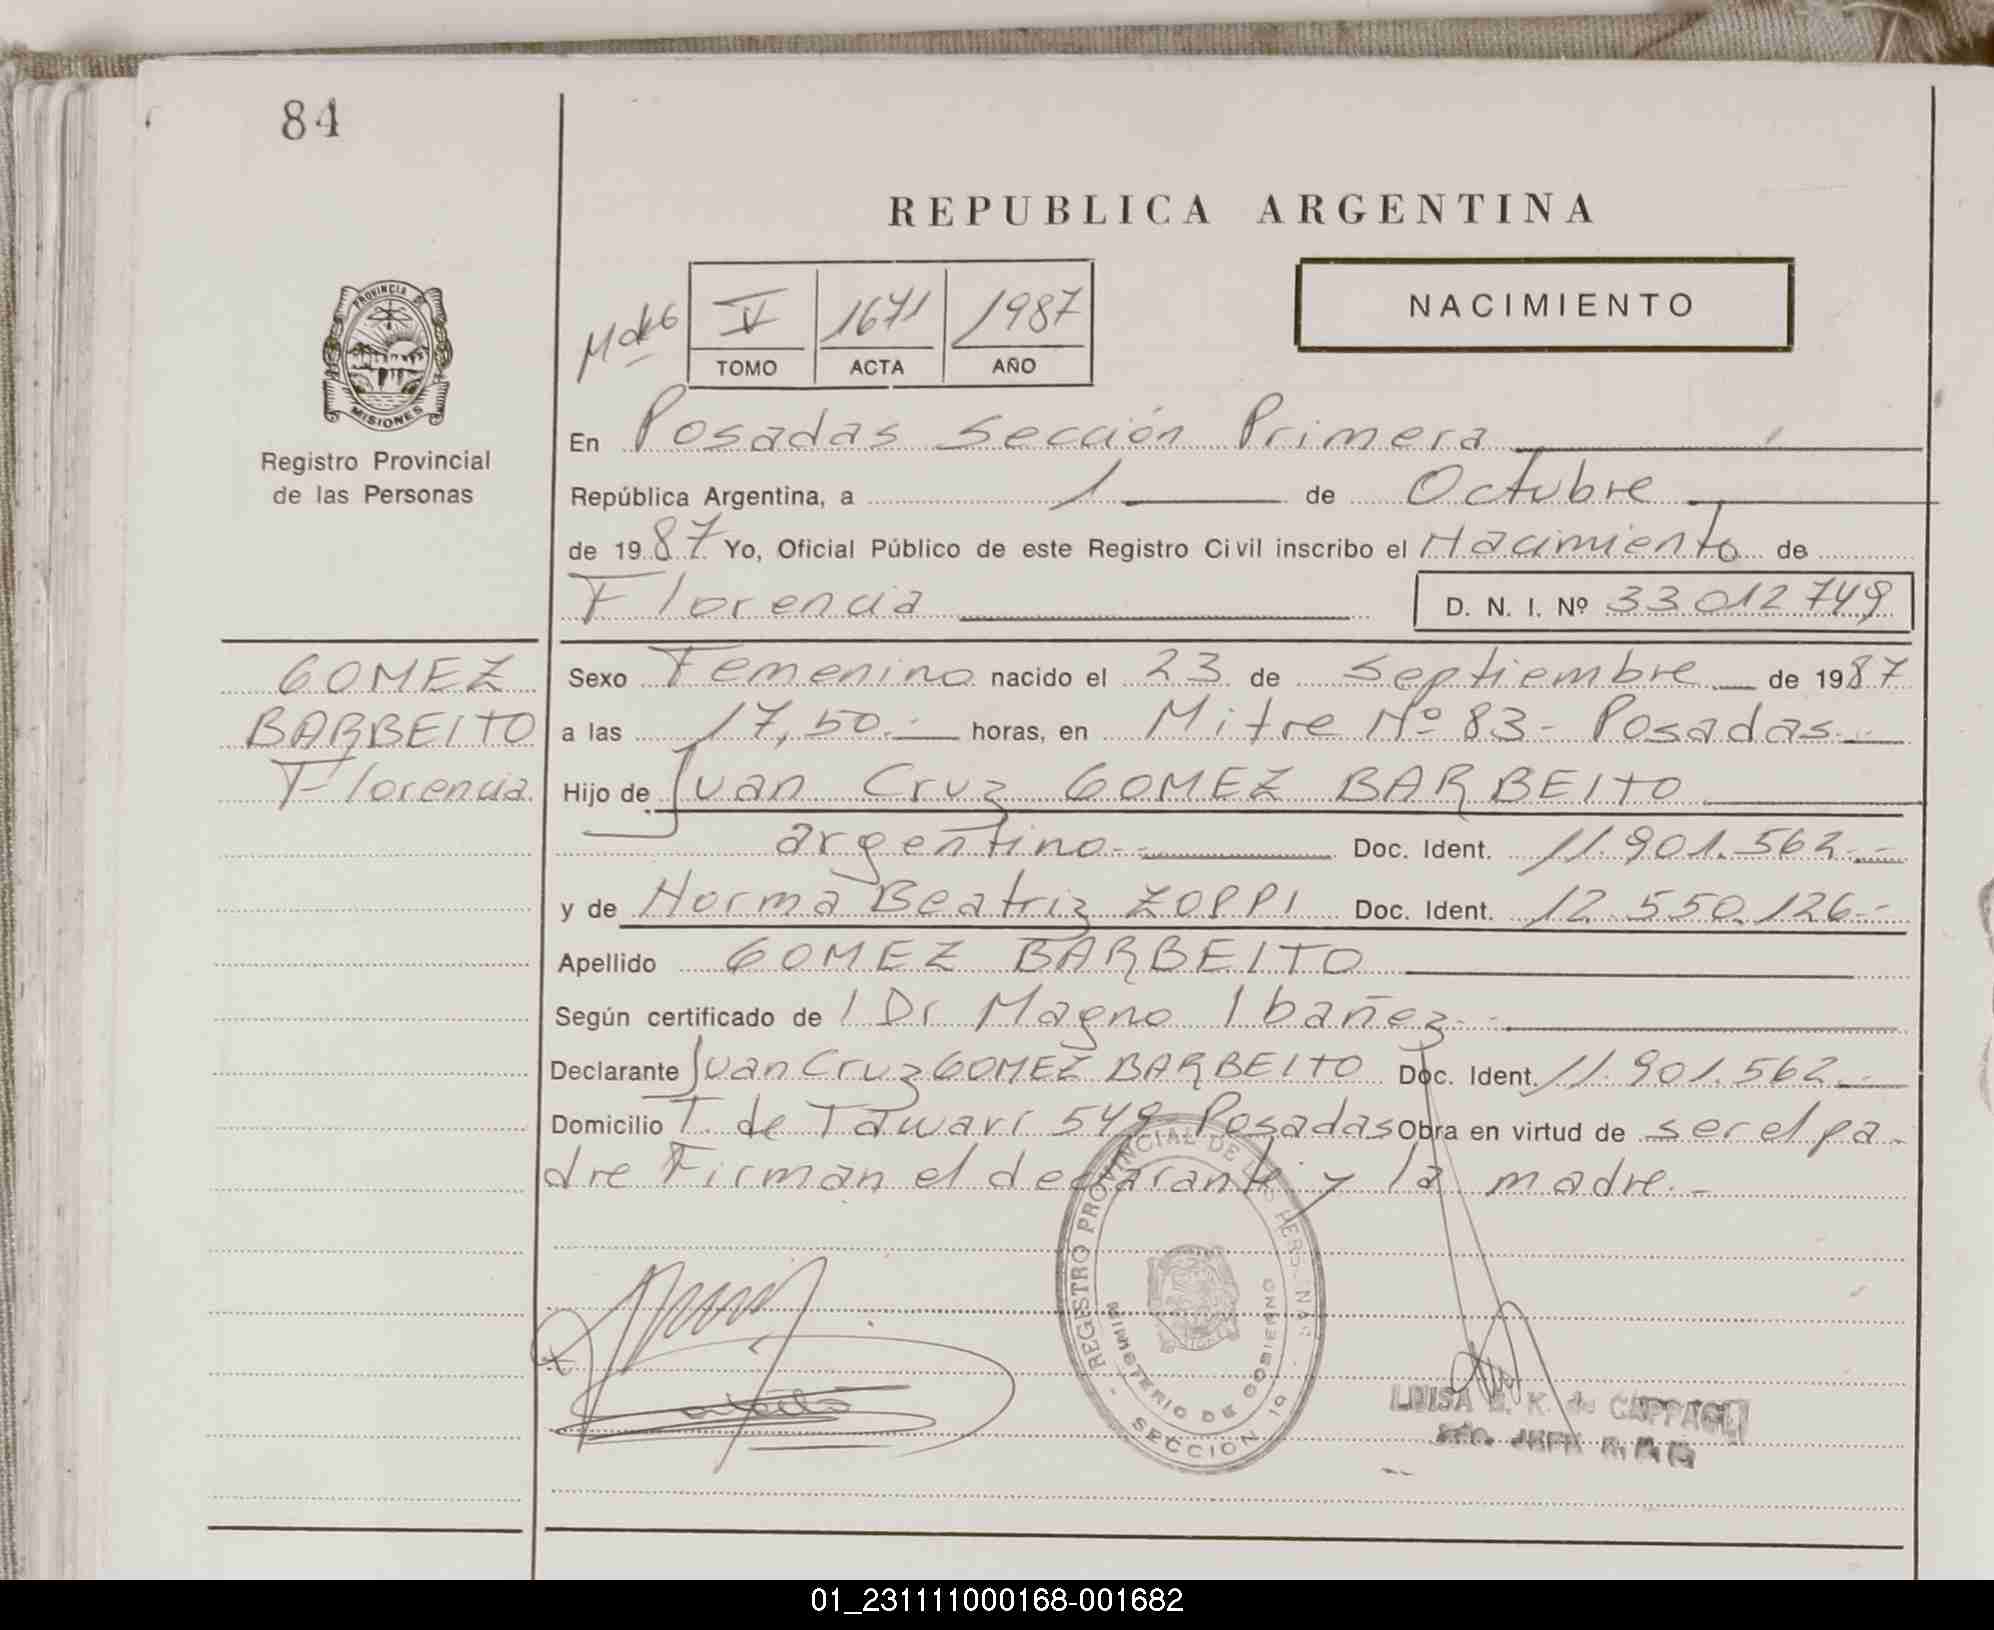 84
REPUBLICA ARGENTINA
NACIMIENTO
V 1671 1987
TOMO ACTA AÑO
PROVINCIA DE
MISIONES
Registro Provincial
de las Personas
En Posadas Sección Primera
República Argentina, a 1 de Octubre
de 1987 Yo, Oficial Público de este Registro Civil inscribo el Nacimiento de
Florencia D. N. I. Nº 33012749
GOMEZ
BARBEITO
Florencia
Sexo Femenino nacido el 23 de Septiembre de 1987
a las 17,50.- horas, en Mitre Nº 83 - Posadas.-
Hijo de Juan Cruz GOMEZ BARBEITO
argentino.- Doc. Ident. 11.901.562.-
y de Norma Beatriz ZOPPI Doc. Ident. 12.550.126.-
Apellido GOMEZ BARBEITO
Según certificado de l Dr Magno Ibañez
Declarante Juan Cruz GOMEZ BARBEITO Doc. Ident. 11.901.562.-
Domicilio T. de Tawari 549 Posadas Obra en virtud de ser el pa-
dre Firman el declarante y la madre.-
REGISTRO PROVINCIAL DE LAS PERSONAS
MINISTERIO DE GOBIERNO
SECCION 1a
LUISA K. de CAPPAGLI
JEFA
01_231111000168-001682